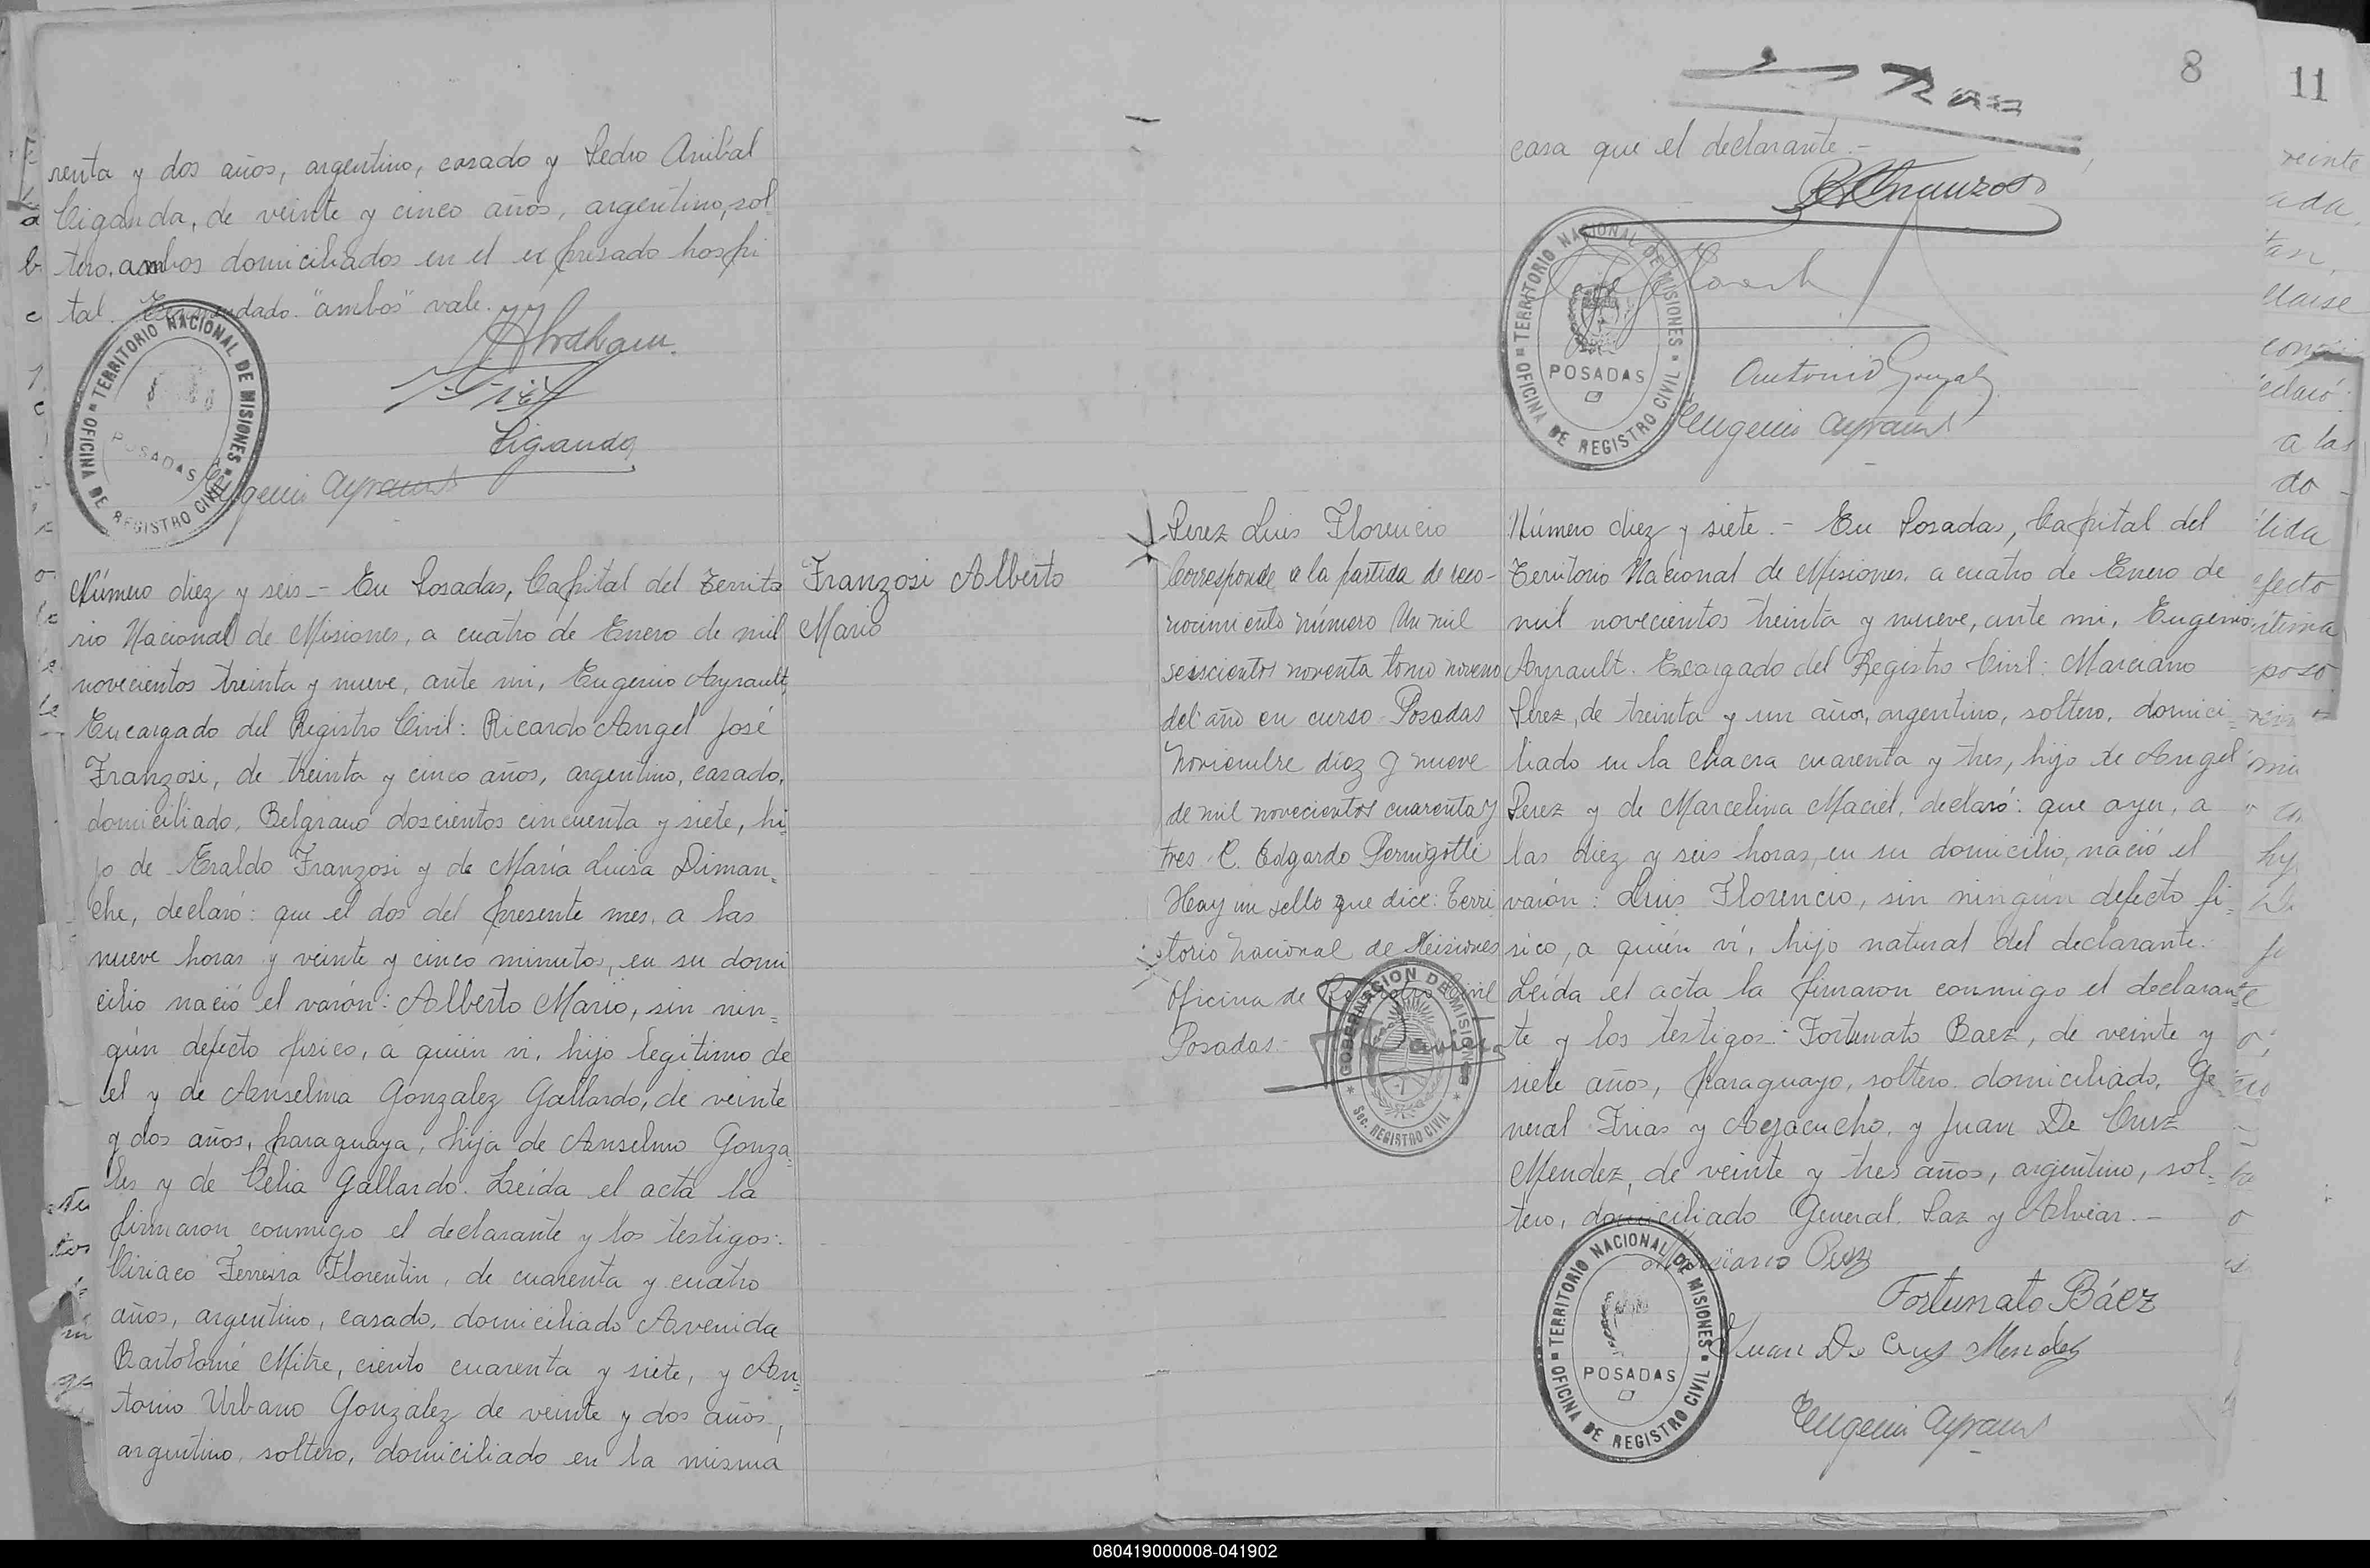 renta y dos años, argentino, casado y Pedro Anibal
Ciganda, de veinte y cinco años, argentino, sol
tero, ambos domiciliados en el expresado hospi
tal. Enmendado. "ambos" vale.
TERRITORIO NACIONAL DE MISIONES
OFICINA DE REGISTRO CIVIL
POSADAS
Ciganda
Eugenio Ayrault
Número diez y seis - En Posadas, Capital del Territo
rio Nacional de Misiones, a cuatro de Enero de mil
novecientos treinta y nueve, ante mi, Eugenio Ayrault,
Encargado del Registro Civil: Ricardo Angel José
Franzosi, de treinta y cinco años, argentino, casado,
domiciliado, Belgrano doscientos cincuenta y siete, hi
jo de Eraldo Franzosi y de María Luisa Diman=
che, declaró: que el dos del presente mes, a las
nueve horas y veinte y cinco minutos, en su domi
cilio nació el varón: Alberto Mario, sin nin=
gún defecto fisico, a quien vi, hijo legitimo de
el y de Anselma Gonzalez Gallardo, de veinte
y dos años, paraguaya, hija de Anselmo Gonza=
les y de Celia Gallardo. Leída el acta la
firmaron conmigo el declarante y los testigos:
Ciriaco Ferreira Florentin, de cuarenta y cuatro
años, argentino, casado, domiciliado Avenida
Bartolomé Mitre, ciento cuarenta y siete, y An=
tonio Urbano Gonzalez de veinte y dos años,
argentino, soltero, domiciliado en la misma
Franzosi Alberto
Mario
8
11
casa que el declarante.-
TERRITORIO NACIONAL DE MISIONES
OFICINA DE REGISTRO CIVIL
POSADAS
Antonio Gonzalez
Eugenio Ayrault
Perez Luis Florencio
Corresponde a la partida de reco-
nocimiento número Un mil
seiscientos noventa tomo noveno
del año en curso - Posadas
Noviembre diez y nueve
de mil novecientos cuarenta y
tres. C. Edgardo Pernigotti
Hay un sello que dice: Terri
torio Nacional de Misiones
Oficina de Registro Civil
Posadas.-
GOBERNACION DE MISIONES
Sec. REGISTRO CIVIL
Número diez y siete.- En Posadas, Capital del
Territorio Nacional de Misiones, a cuatro de Enero de
mil novecientos treinta y nueve, ante mi, Eugenio
Ayrault. Encargado del Registro Civil: Marciano
Perez, de treinta y un años, argentino, soltero, domici=
liado en la chacra cuarenta y tres, hijo de Angel
Perez y de Marcelina Maciel, declaró: que ayer, a
las diez y seis horas, en su domicilio, nació el
varón: Luis Florencio, sin ningún defecto fi=
sico, a quién ví, hijo natural del declarante.
Leída el acta la firmaron conmigo el declaran=
te y los testigos: Fortunato Baez, de veinte y
siete años, paraguayo, soltero, domiciliado, Ge=
neral Frias y Ayacucho, y Juan De Cruz
Mendez, de veinte y tres años, argentino, sol=
tero, domiciliado General Paz y Alvear.-
Marciano Perez
Fortunato Báez
Juan De Cruz Mendez
TERRITORIO NACIONAL DE MISIONES
OFICINA DE REGISTRO CIVIL
POSADAS
Eugenio Ayrault
080419000008-041902